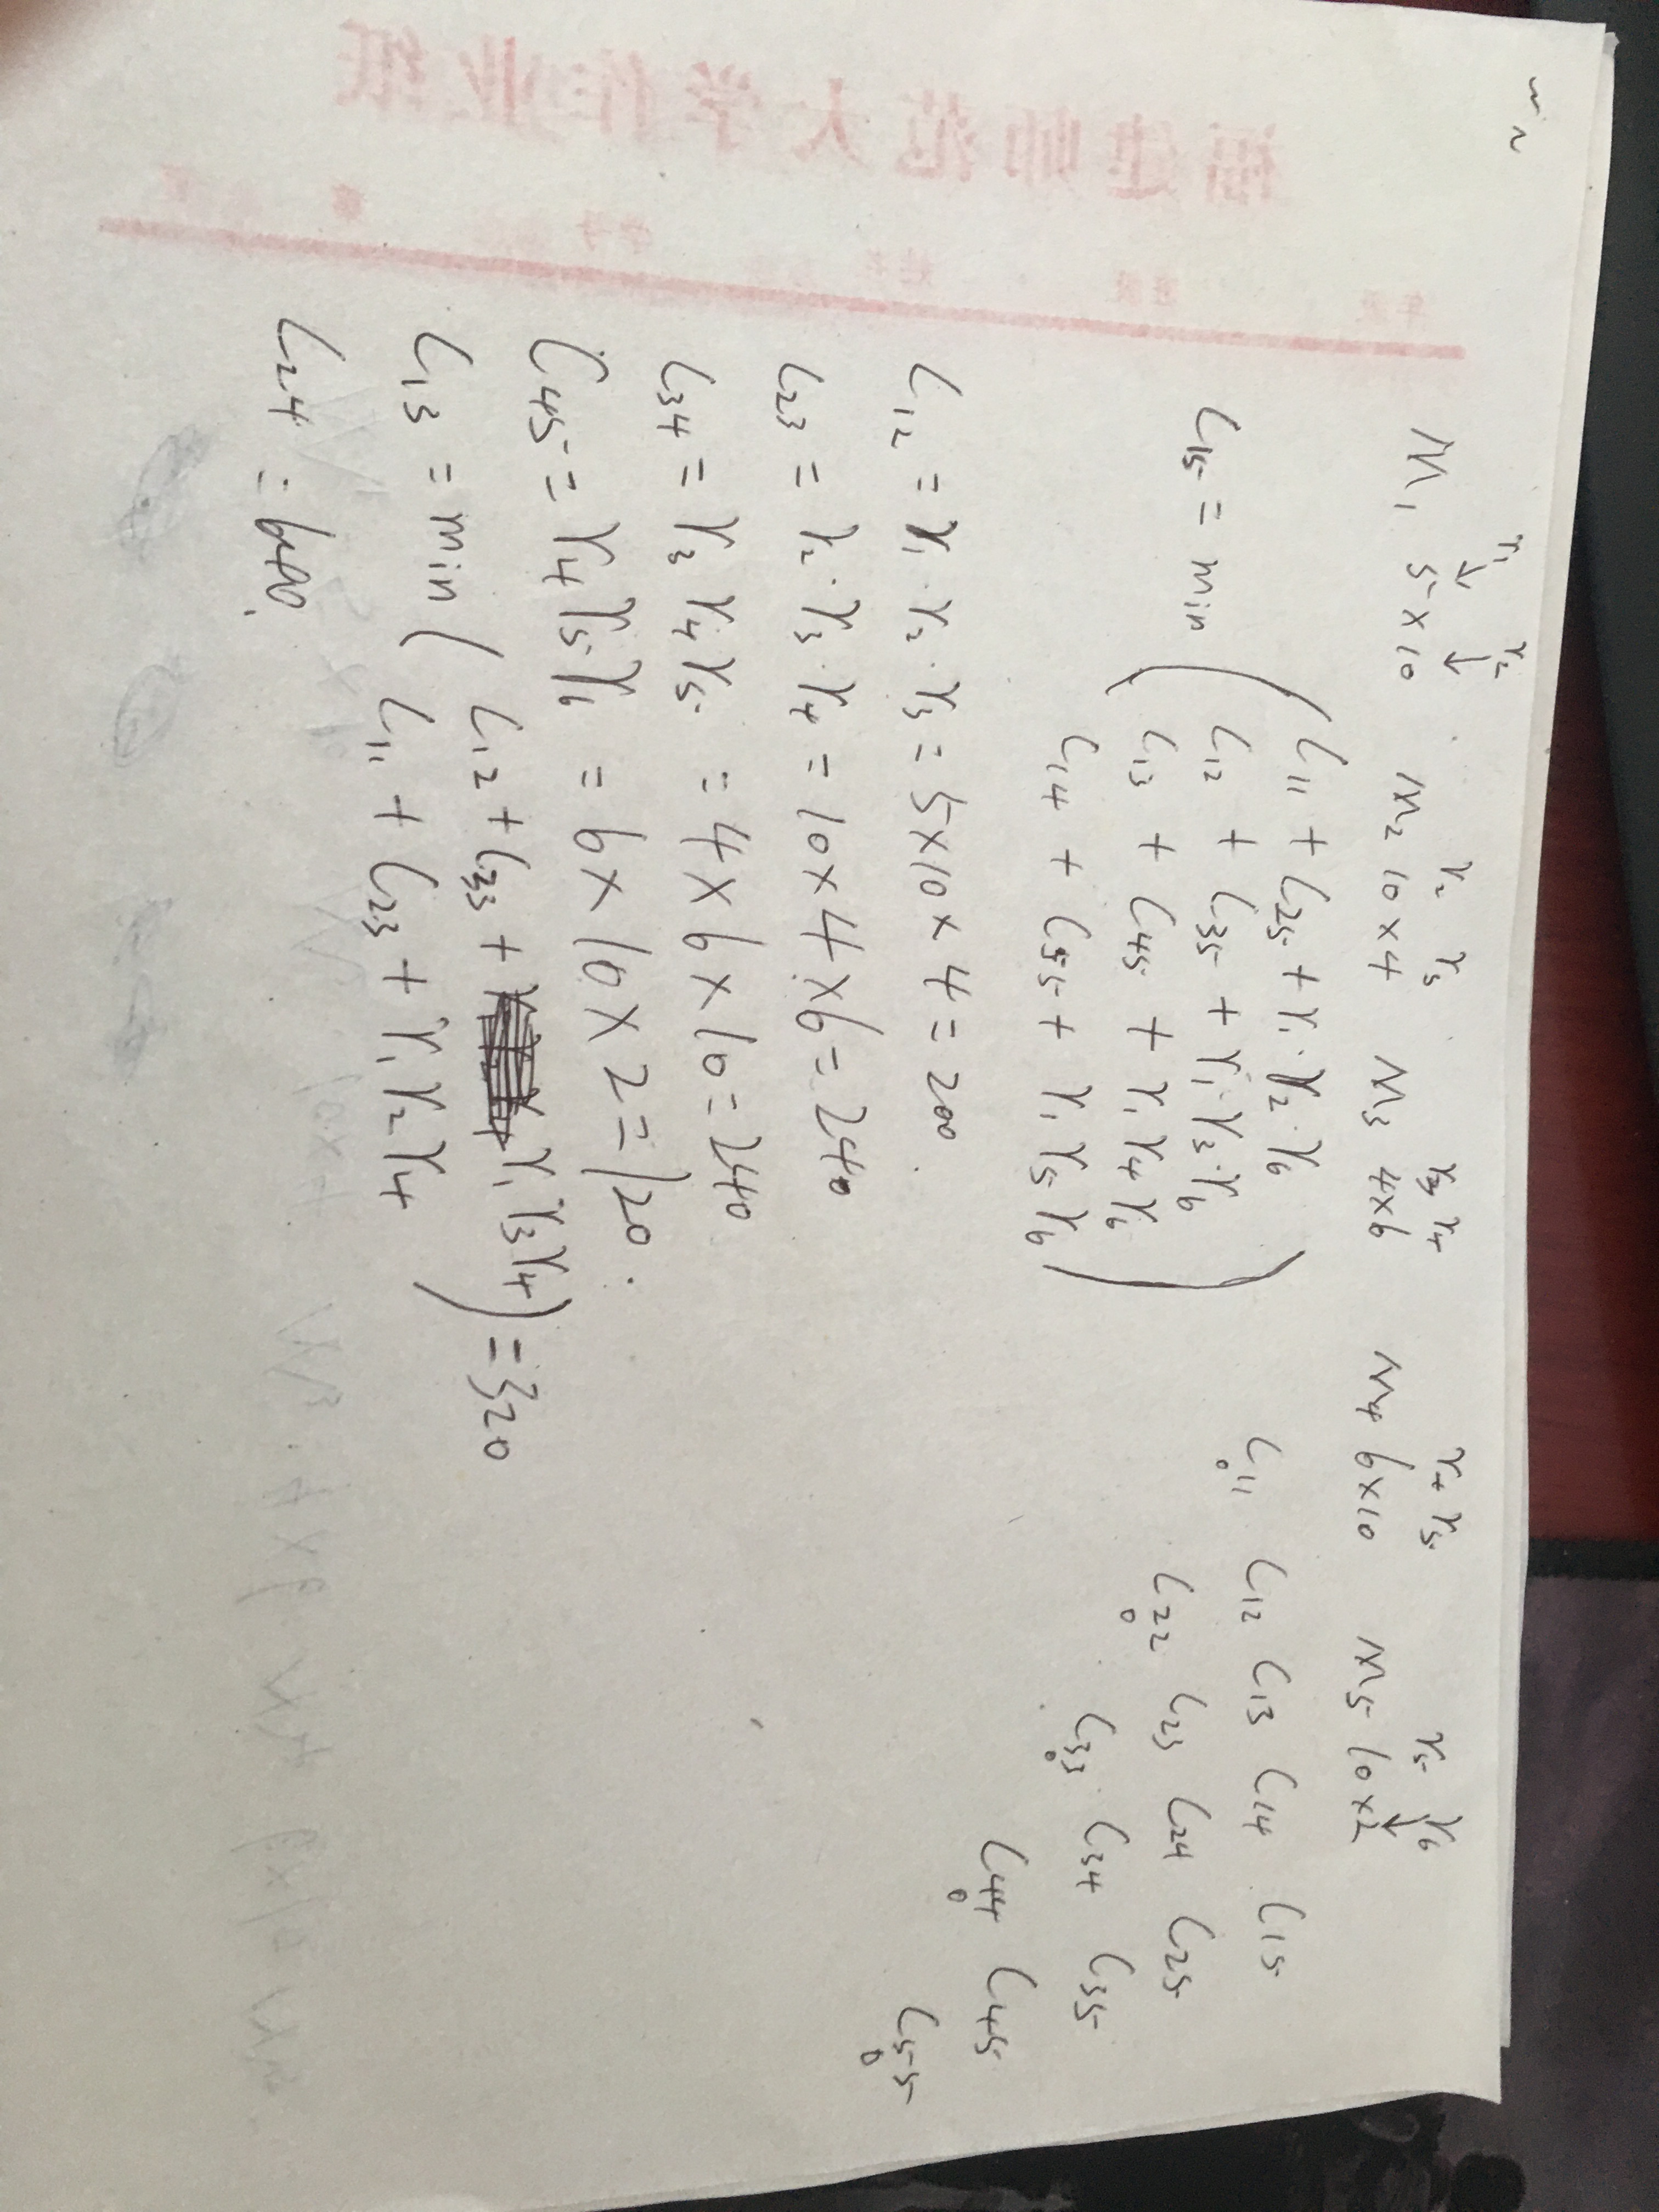 r₁ r₂
r₂ r₃ r₃ r₄ r₄ r₅ r₅ r₆
M₁ 5×10 M₂ 10×4 M₃ 4×6 M₄ 6×10 M₅ 10×2
C₁₅ = min
C₁₁ + C₂₅ + r₁·r₂·r₆
C₁₂ + C₃₅ + r₁·r₃·r₆
C₁₃ + C₄₅ + r₁r₄r₆
C₁₄ + C₅₅ + r₁r₅r₆
C₁₁ C₁₂ C₁₃ C₁₄ C₁₅
0
C₂₂ C₂₃ C₂₄ C₂₅
0
C₃₃ C₃₄ C₃₅
0
C₄₄ C₄₅
0
C₅₅
0
C₁₂ = r₁·r₂·r₃ = 5×10×4 = 200
C₂₃ = r₂·r₃·r₄ = 10×4×6 = 240
C₃₄ = r₃r₄r₅ = 4×6×10 = 240
C₄₅ = r₄r₅r₆ = 6×10×2 = 120.
C₁₃ = min ( C₁₂ + C₃₃ + r₁r₃r₄ ) = 320
C₁₁ + C₂₃ + r₁r₂r₄
C₂₄ = 640.